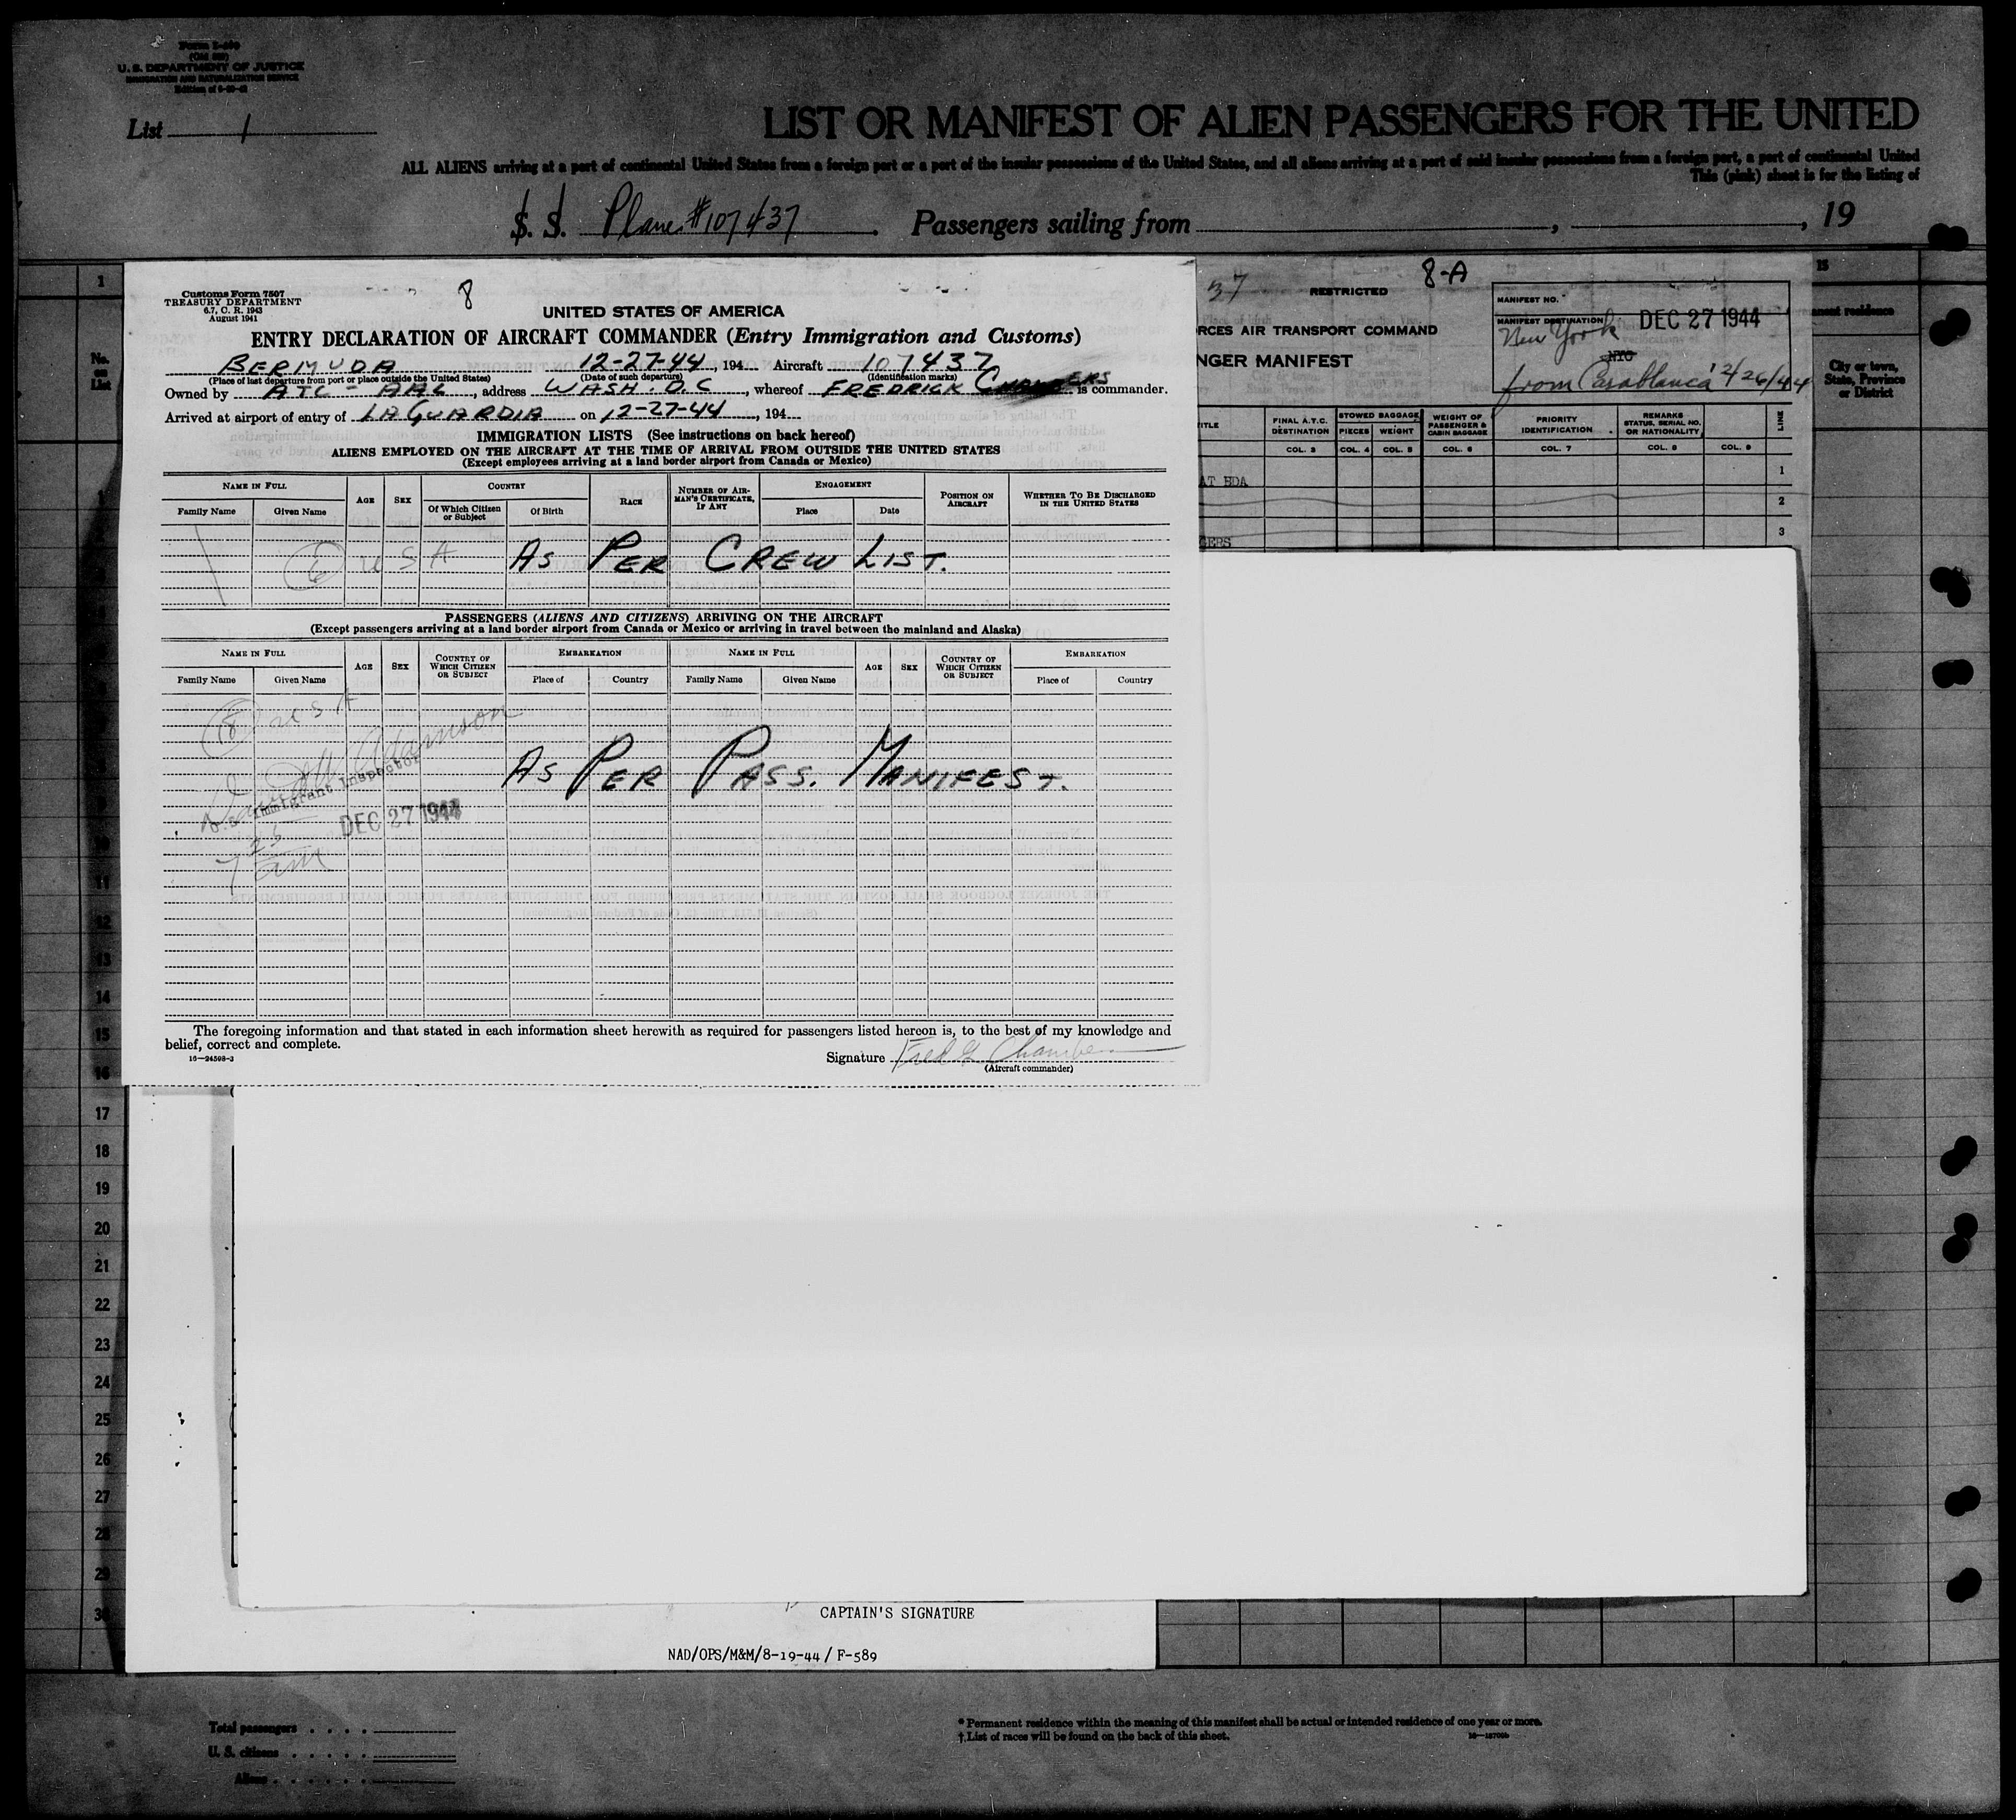 Form I-400
U. S. DEPARTMENT OF JUSTICE
IMMIGRATION AND NATURALIZATION SERVICE
List 1
LIST OR MANIFEST OF ALIEN PASSENGERS FOR THE UNITED
ALL ALIENS arriving at a port of continental United States from a foreign port or a port of the insular possessions of the United States, and all aliens arriving at a port of said insular possessions from a foreign port, a port of continental United
This (pink) sheet is for the listing of
S. S. Plane #107437. Passengers sailing from , , 19
Customs Form 7507
TREASURY DEPARTMENT
6.7, C. R. 1943
August 1941
8
UNITED STATES OF AMERICA
ENTRY DECLARATION OF AIRCRAFT COMMANDER (Entry Immigration and Customs)
BERMUDA 12-27-44, 194 Aircraft 107437
(Place of last departure from port or place outside the United States) (Date of such departure) (Identification marks)
Owned by ATC - AAL, address WASH. D.C, whereof FREDRICK is commander.
Arrived at airport of entry of LAGUARDIA on 12-27-44, 194
IMMIGRATION LISTS (See instructions on back hereof)
ALIENS EMPLOYED ON THE AIRCRAFT AT THE TIME OF ARRIVAL FROM OUTSIDE THE UNITED STATES
(Except employees arriving at a land border airport from Canada or Mexico)
NAME IN FULL AGE SEX COUNTRY RACE NUMBER OF AIRMAN'S CERTIFICATE, IF ANY ENGAGEMENT POSITION ON AIRCRAFT WHETHER TO BE DISCHARGED IN THE UNITED STATES
Family Name Given Name Of Which Citizen or Subject Of Birth Place Date
6 USA AS PER CREW LIST.
PASSENGERS (ALIENS AND CITIZENS) ARRIVING ON THE AIRCRAFT
(Except passengers arriving at a land border airport from Canada or Mexico or arriving in travel between the mainland and Alaska)
NAME IN FULL AGE SEX COUNTRY OF WHICH CITIZEN OR SUBJECT EMBARKATION NAME IN FULL AGE SEX COUNTRY OF WHICH CITIZEN OR SUBJECT EMBARKATION
Family Name Given Name Place of Country Family Name Given Name Place of Country
USA
Adamson
U.S. Immigrant Inspector
AS PER PASS. MANIFEST.
DEC 27 1944
7 am
The foregoing information and that stated in each information sheet herewith as required for passengers listed hereon is, to the best of my knowledge and
belief, correct and complete.
16-24598-3
Signature Fred G Chambers
(Aircraft commander)
37 RESTRICTED 8-A
RCES AIR TRANSPORT COMMAND
NGER MANIFEST
MANIFEST NO.
MANIFEST DESTINATION DEC 27 1944
New York
NYC
from Casablanca 12/26/44
TITLE FINAL A.T.C. DESTINATION STOWED BAGGAGE PIECES WEIGHT WEIGHT OF PASSENGER & CABIN BAGGAGE PRIORITY IDENTIFICATION REMARKS STATUS, SERIAL NO. OR NATIONALITY LINE
COL. 3 COL. 4 COL. 5 COL. 6 COL. 7 COL. 8 COL. 9
1
AT BDA
2
GERS
3
15
anent residence
City or town, State, Province or District
No. on List
1
10
11
12
13
14
15
16
17
18
19
20
21
22
23
24
25
26
27
28
29
30
CAPTAIN'S SIGNATURE
NAD/OPS/M&M/8-19-44 / F-589
Total passengers
U. S. citizens
Aliens
* Permanent residence within the meaning of this manifest shall be actual or intended residence of one year or more.
† List of races will be found on the back of this sheet.